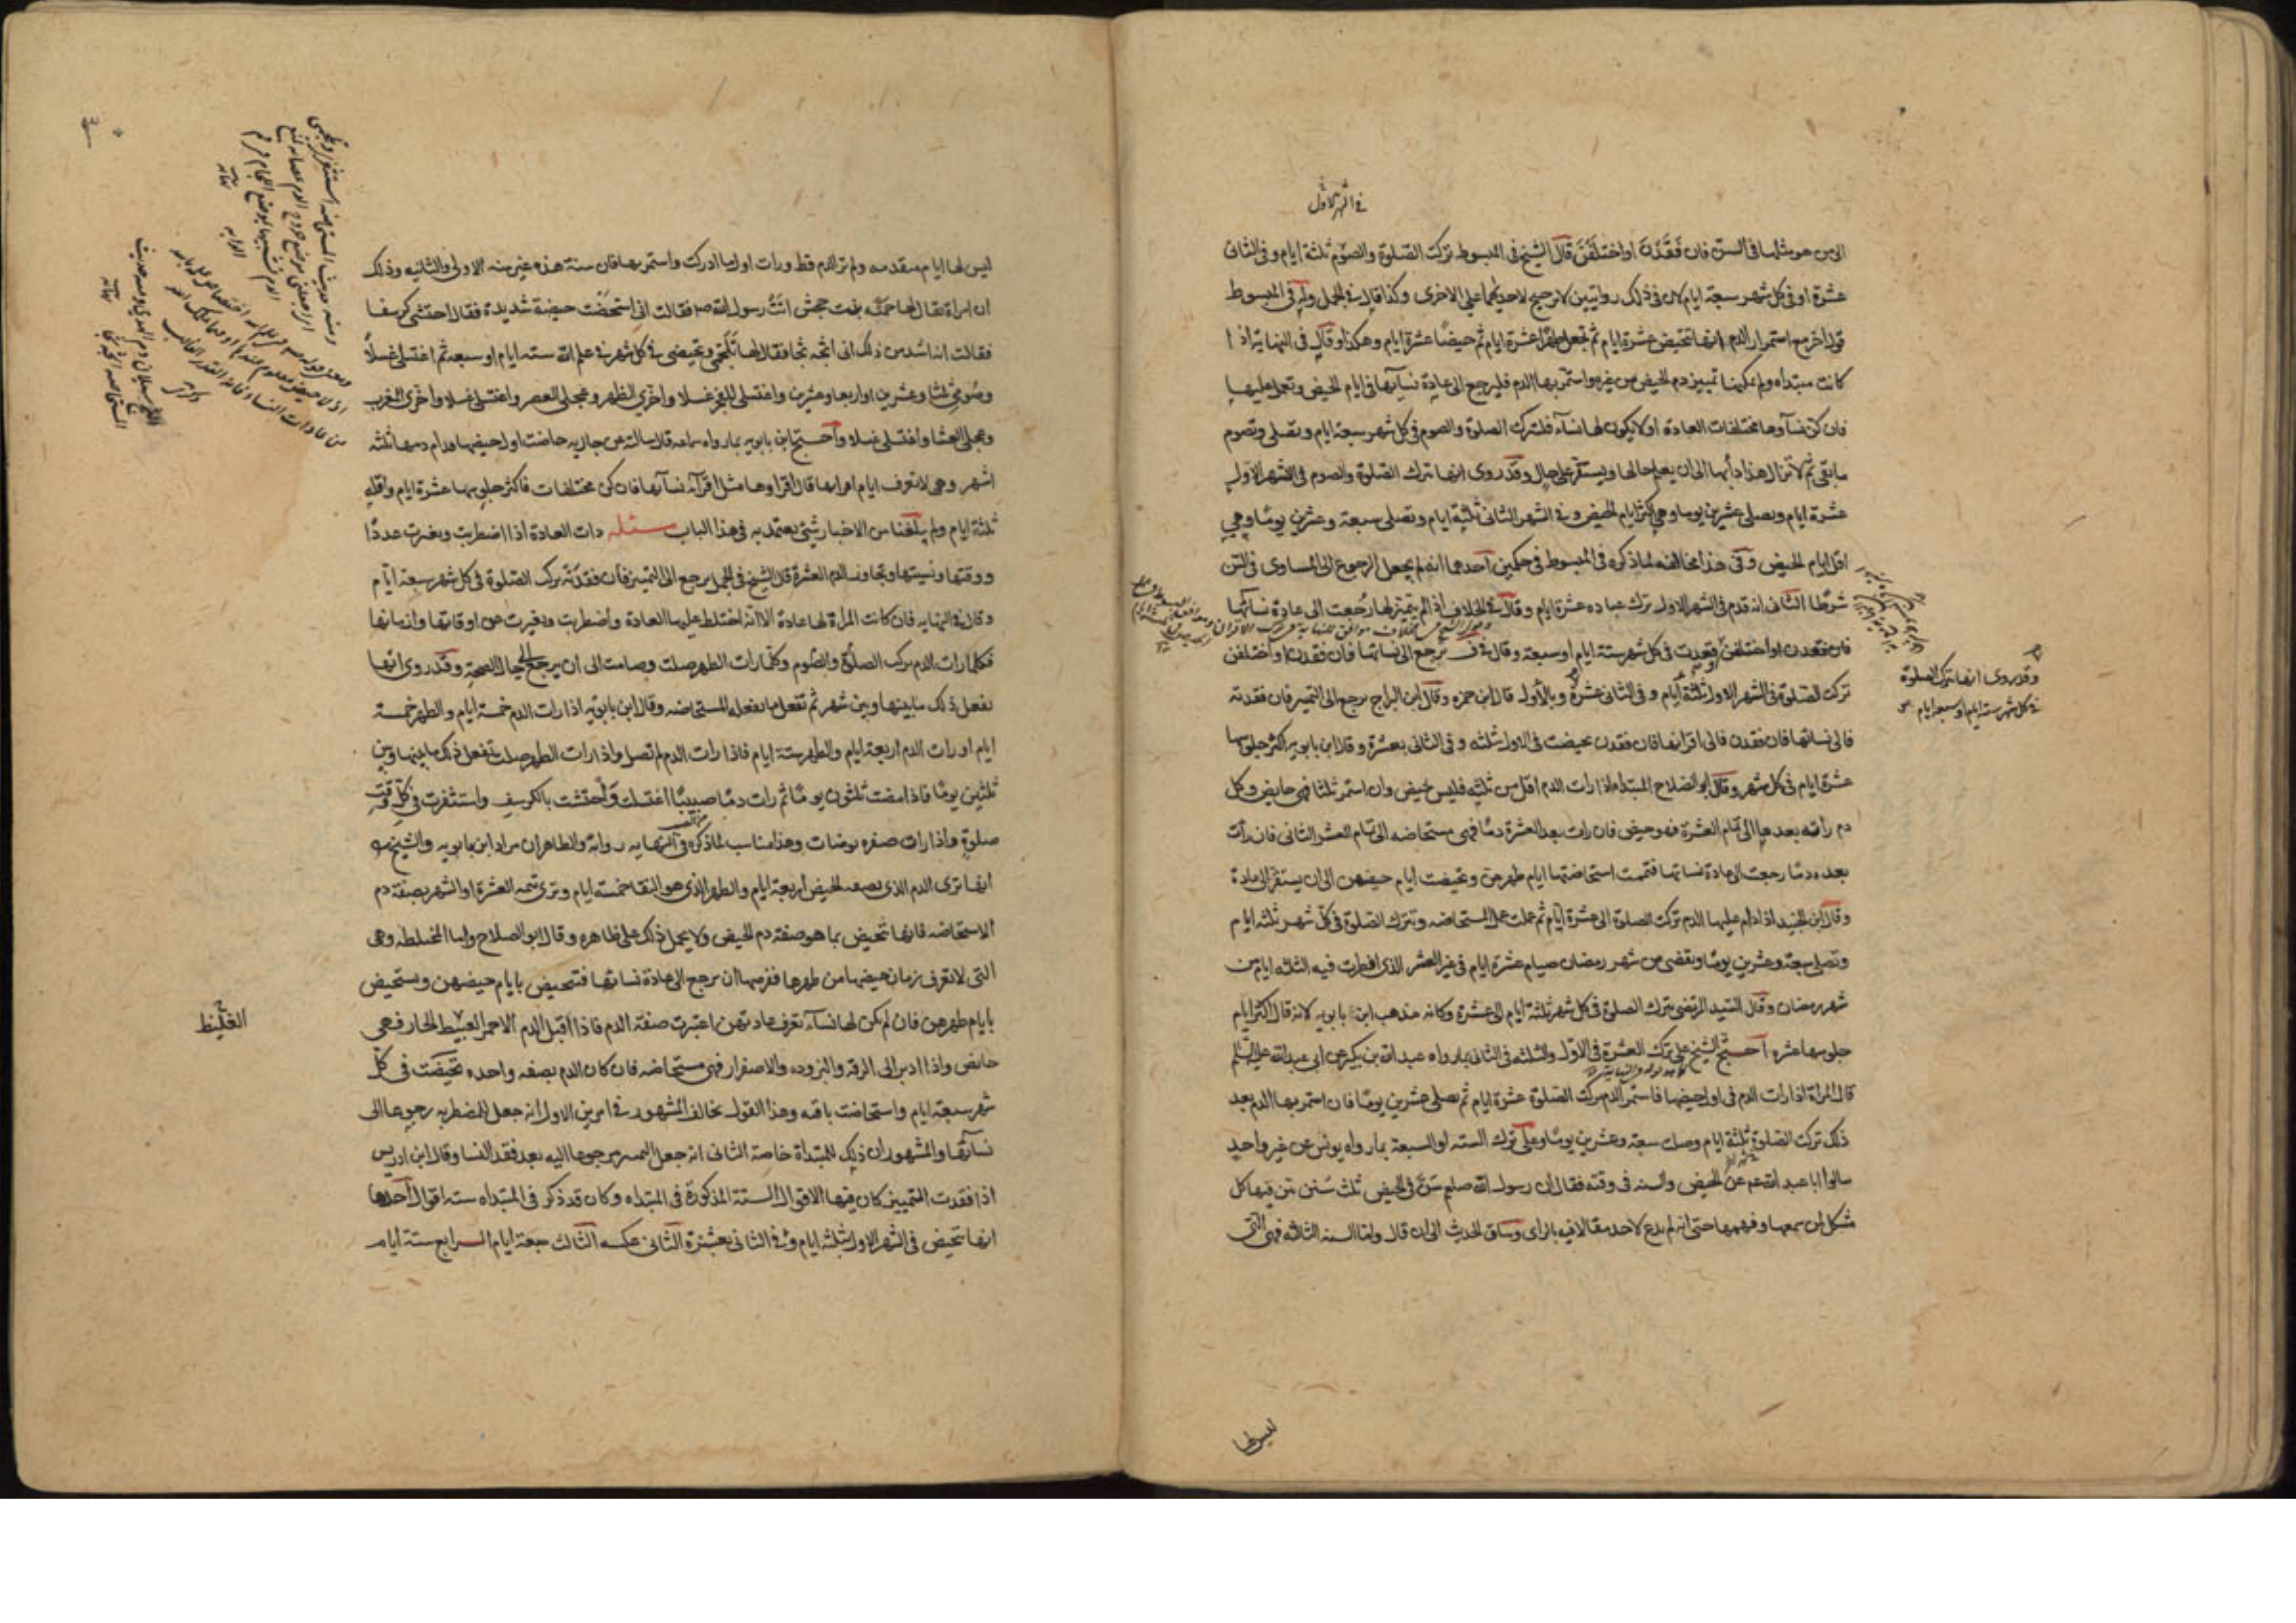 في الشهر الاول
اللاتي هن مثلها في السن فان فقدن او اختلفن قال الشيخ في المبسوط تركت الصلوة والصوم ثلثة ايام وفي الثاني
عشرة او في كل شهر سبعة ايام لان في ذلك روايتين لا ترجيح لاحديهما على الاخرى وكذا قال في الجمل وله في المبسوط
قول اخر مع استمرار الدم انها تتحيض عشرة ايام ثم تجعل طهرا عشرة ايام ثم حيضا عشرة ايام وهكذا وقال في النهاية اذا
كانت مبتداه ولم يمكنها تمييز دم الحيض من غيره واستمر بها الدم فليرجع الى عادة نسآئها في ايام الحيض وتعمل عليها
فان كن نسآوها مختلفات العادة او لا يكون لها نسآء فلتترك الصلوة والصوم في كل شهر سبعة ايام وتصلى وتصوم
ما بقى ثم لا تزال هذا دأبها الى ان يعلم حالها ويستقر على حال وقد روى انها تترك الصلوة والصوم في الشهر الاول
عشرة ايام وتصلى عشرين يوما وهي اكثر ايام الحيض وفي الشهر الثاني ثلثة ايام وتصلى سبعة وعشرين يوما وهي
اقل ايام الحيض وفي هذا مخالفه لما ذكره في المبسوط في حكمين احدهما انه لم يجعل الرجوع الى المساوى في السن
شرطا الثاني انه قدم في الشهر الاول ترك عباده عشرة ايام وقال في الخلاف اذا لم يتميز لها رجعت الى عادة نسآئها
فان فقدن او اختلفن قعدت في كل شهر ستة ايام او سبعة وقال في ف ترجع الى نسائها فان فقدن او اختلفن
تركت الصلوة في الشهر الاول ثلثة ايام وفي الثاني عشرة وبالأول قال ابن حمزه وقال ابن البراج ترجع الى التمييز فان فقدته
فالى نسائها فان فقدن فالى اقرانها فان فقدن تحيضت في الاول ثلثه وفي الثاني بعشرة وقال ابن بابويه اكثر جلوسها
عشرة ايام في كل شهر وقال ابو الصلاح المبتداه اذا رات الدم اقل من ثلثه فليس بحيض وان استمر ثلثا فهي حايض وكل
دم رأته بعدها الى تمام العشرة فهو حيض فان رات بعد العشرة دما فهي مستحاضه الى تمام العشر الثاني فان رأت
بعده دما رجعت الى عادة نسائها فتممت استحاضتها ايام طهرهن وتحيضت ايام حيضهن الى ان يستقر الى عادة
وقال ابن الجنيد اذا دام عليها الدم تركت الصلوة الى عشرة ايام ثم عملت عمل المستحاضه وتترك الصلوة في كل شهر ثلثه ايام
وتصلي سبعة وعشرين يوما وتقضى من شهر رمضان صيام عشرة ايام في غير العشر الذي افطرت فيه الثلاثه ايام من
شهر رمضان وقال السيد المرتضى تترك الصلوة في كل شهر ثلثة ايام الى عشرة وكانه مذهب ابن بابويه لانه قال اكثر ايام
جلوسها عشره احتج الشيخ على ترك العشرة في الاول والثلثه في الثاني بما رواه عبد الله بن بكير عن ابي عبد الله عليه السلم
قال المراة اذا رات الدم في اول حيضها فاستمر الدم تركت الصلوة عشرة ايام ثم تصلى عشرين يوما فان استمر بها الدم بعد
ذلك تركت الصلوة ثلثة ايام وصلت سبعة وعشرين يوما وعلى ترك السته او السبعة بما رواه يونس عن غير واحد
سالوا ابا عبد الله عم عن الحيض والسنه في وقته فقال ان رسول الله صلعم سن في الحيض ثلث سنن بين فيها كل
مشكل لمن سمعها وفهمها حتى انه لم يدع لاحد مقالا فيه بالراى وساق الحديث الى ان قال واما السنه الثالثه فهي التي
وقد روى انها تترك الصلوة
في كل شهر ستة ايام او سبعة ايام
ليس لها
ليس لها ايام متقدمه ولم تر الدم قط ورات اول ما ادركت واستمر بها فان سنة هذه غير سنه الاولى والثانيه وذلك
ان امراة يقال لها حمنة بنت جحش اتت رسول الله ص فقالت اني استحضت حيضة شديدة فقال احتشى كرسفا
فقالت انه اشد من ذلك اني اثجه ثجا فقال لها تلجمى وتحيضى في كل شهر في علم الله سته ايام او سبعه ثم اغتسلى غسلا
وصومي ثلثا وعشرين او اربعا وعشرين واغتسلى للفجر غسلا واخرى الظهر وعجلى العصر واغتسلى غسلا واخرى المغرب
وعجلى العشا واغتسلى غسلا واحتج ابن بابويه بما رواه سماعه قال سالته عن جاريه حاضت اول حيضها فدام دمها ثلثه
اشهر وهي لا تعرف ايام اقرائها قال اقراوها مثل اقرآء نسآئها فان كن مختلفات فاكثر جلوسها عشرة ايام واقله
ثلثة ايام ولم يبلغنا من الاخبار شيئ يعتمد به في هذا الباب مسئله ذات العادة اذا اضطربت وتغيرت عددا
ووقتها ونسيتها وتجاوز الدم العشرة قال الشيخ في الجمل ترجع الى التمييز فان فقدته تركت الصلوة في كل شهر سبعة ايام
وقال في النهايه فان كانت المراة لها عادة الا انه اختلط عليها العادة واضطربت وتغيرت عن اوقاتها وازمانها
فكلما رات الدم تركت الصلوة والصوم وكلما رات الطهر صلت وصامت الى ان يرجع الى حال الصحة وقد روى انها
تفعل ذلك ما بينها وبين شهر ثم تفعل ما تفعله المستحاضه وقال ابن بابويه اذا رات الدم خمسة ايام والطهر خمسة
ايام او رات الدم اربعة ايام والطهر ستة ايام فاذا رات الدم لم تصل واذا رات الطهر صلت تفعل ذلك ما بينها وبين
ثلثين يوما فاذا مضت ثلثون يوما ثم رات دما صبيبا اغتسلت واحتشت بالكرسف واستثفرت في كل وقت
صلوة واذا رات صفره توضات وهذا مناسب لما ذكره في النهايه روايه والظاهر ان مراد ابن بابويه والشيخ
انها ترى الدم الذي بصفة الحيض اربعة ايام والطهر الذي هو النقا خمسته ايام وترى تتمه العشرة او الشهر بصفة دم
الاستحاضه فانها تتحيض بما هو صفة دم الحيض ولا يحمل ذلك على ظاهره وقال ابو الصلاح واما المختلطه وهي
التي لا تعرف زمان حيضها من طهرها ففرضها ان ترجع الى عادة نسائها فتتحيض بايام حيضهن وتستحيض
بايام طهرهن فان لم يكن لها نسآء تعرف عادتهن اعتبرت صفة الدم فاذا اقبل الدم الاحمر العبيط الحار فهي
حائض واذا ادبر الى الرقه والبروده والاصفرار فهي مستحاضه فان كان الدم بصفه واحده تحيضت في كل
شهر سبعة ايام واستحاضت باقيه وهذا القول يخالف المشهور في امرين الاول انه جعل المضطربه رجوعا الى
نسآئها والمشهور ان ذلك للمبتداة خاصة الثاني انه جعل التمييز مرجوعا اليه بعد فقد النسا وقال ابن ادريس
اذا فقدت التمييز كان فيها الاقوال الستة المذكورة في المبتداه وكان قد ذكر في المبتداه سته اقوال احدها
انها تتحيض في الشهر الاول بثلثه ايام وفي الثاني بعشرة الثاني عكسه الثالث سبعة ايام الرابع ستة ايام
الغليظ